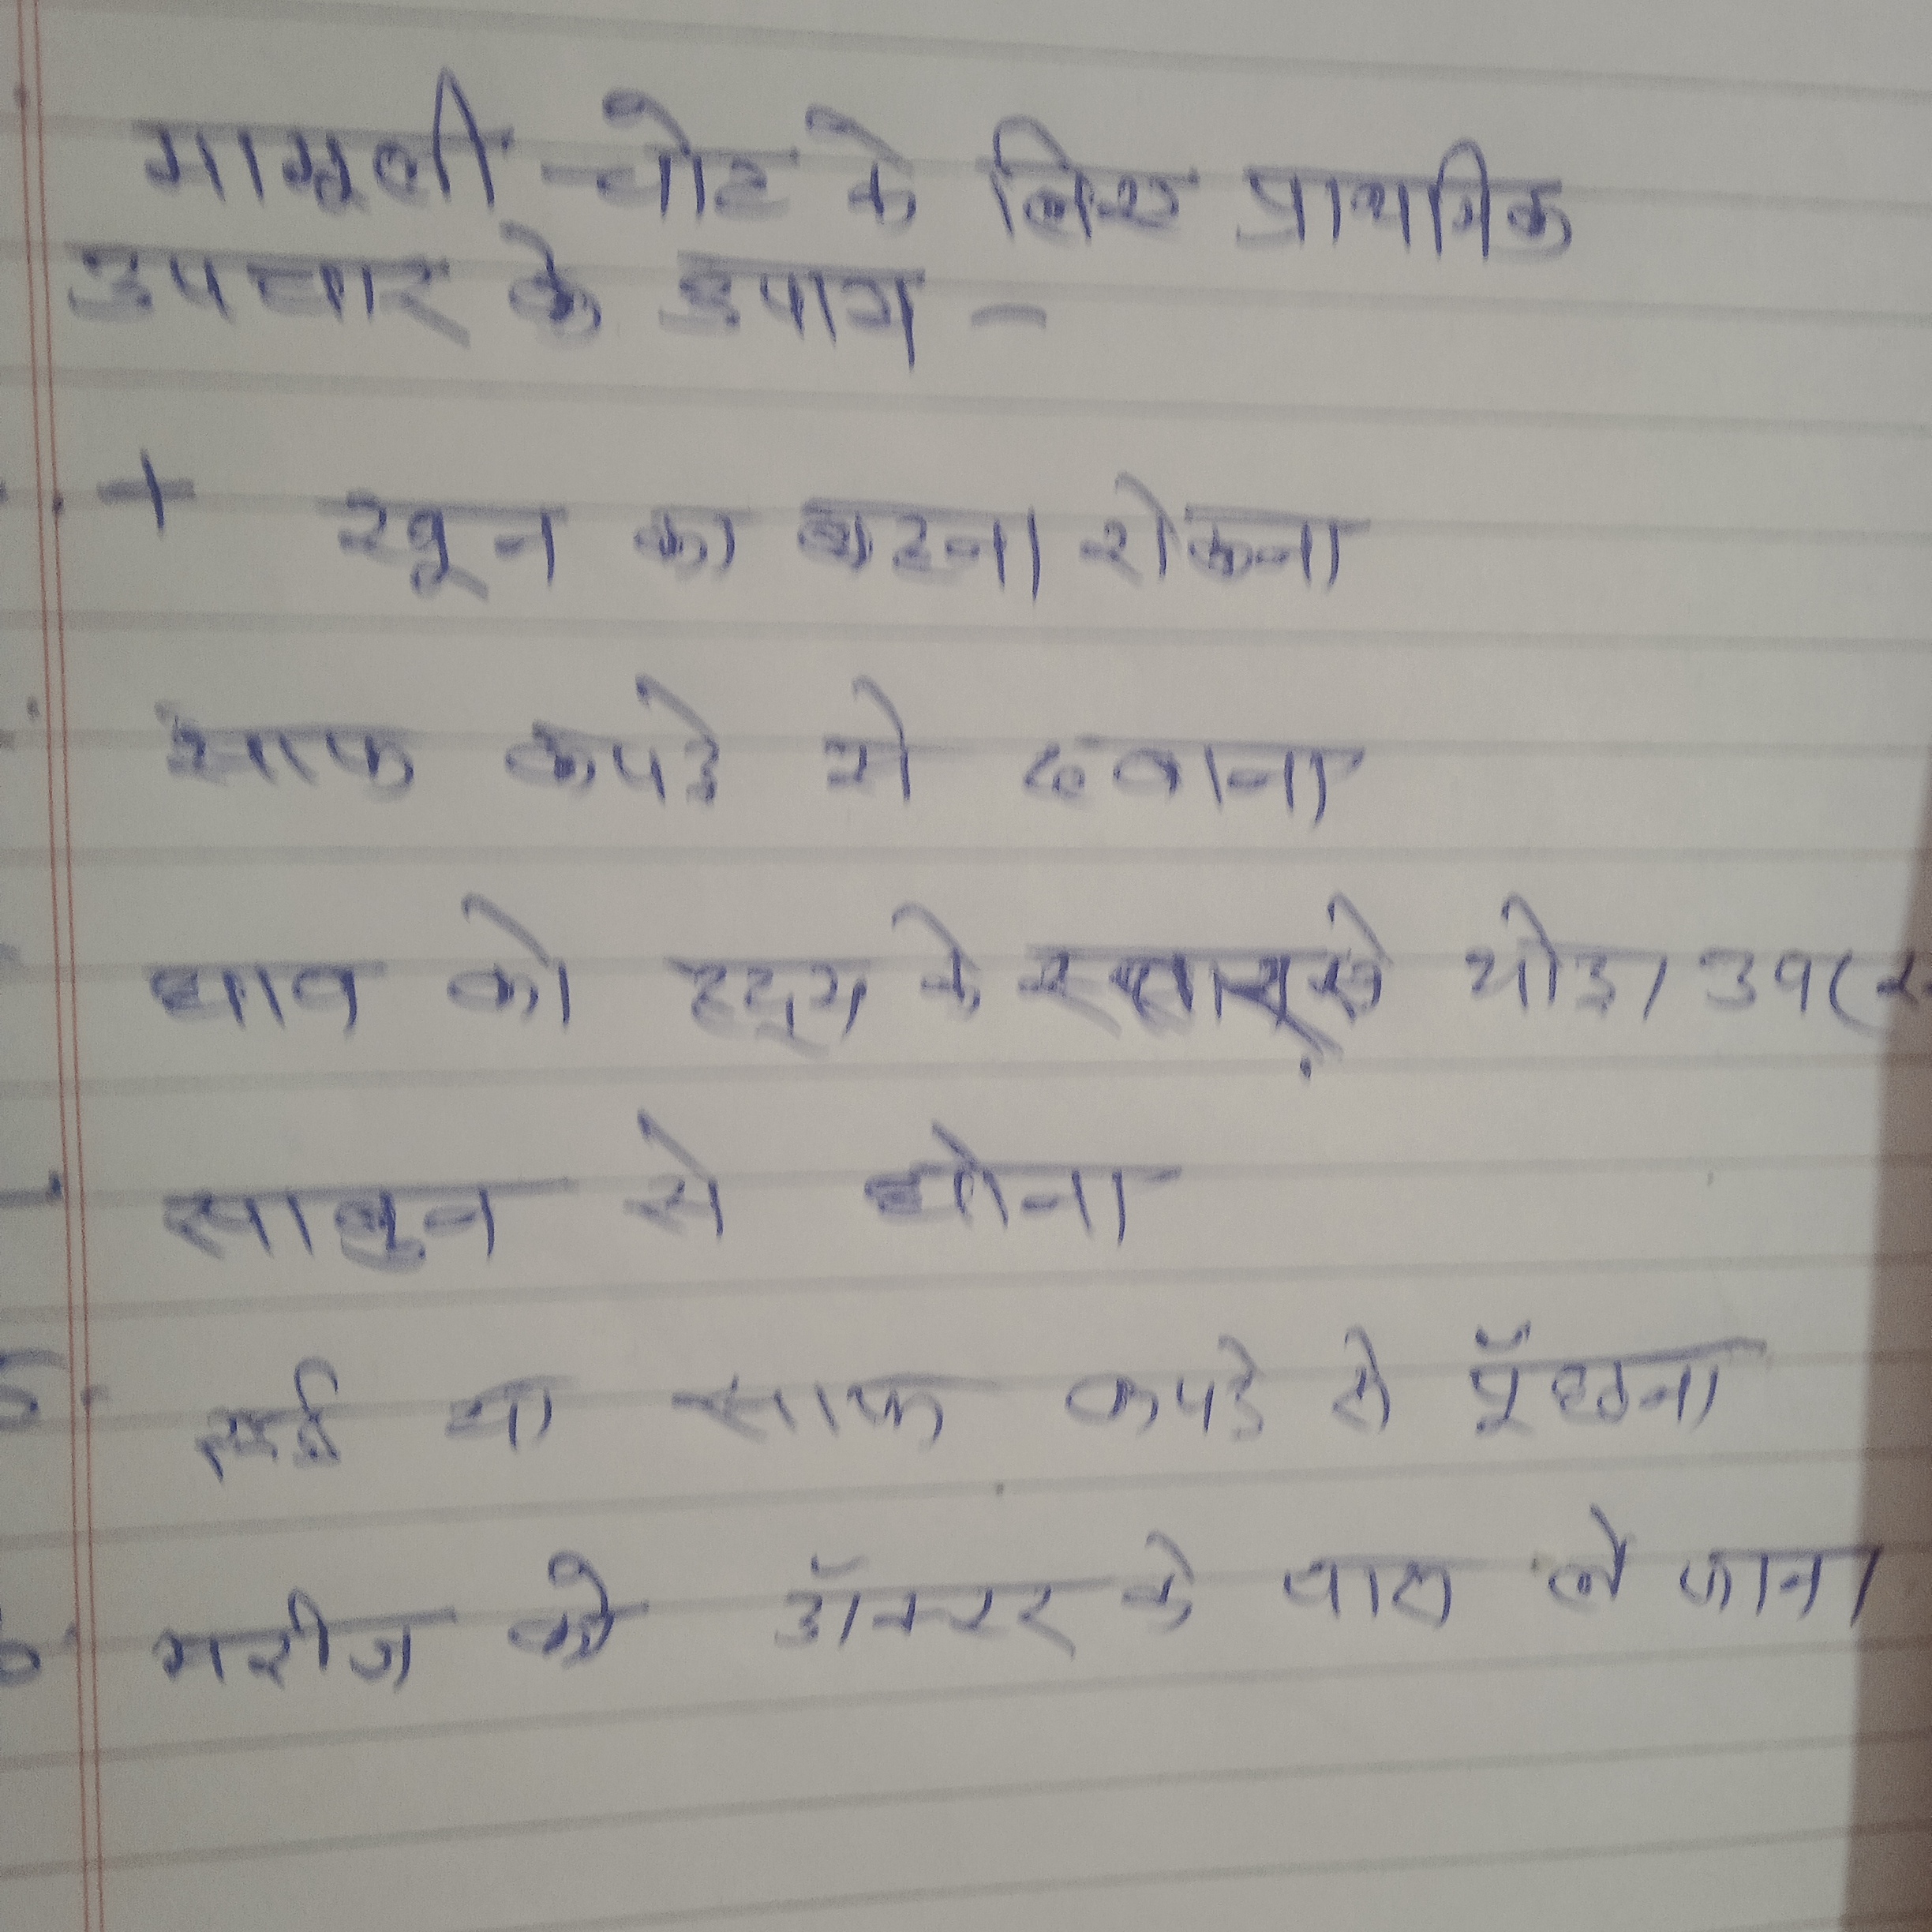 मामूली चोट के लिए प्राथमिक
उपचार के उपाय -
. + खून का बहना रोकना
साफ कपड़े से दबाना
घाव को हृदय के से थोड़ा
साबुन से धोना
5. रुई या साफ कपड़े से पूँछना
6. मरीज को डॉक्टर के पास ले जाना